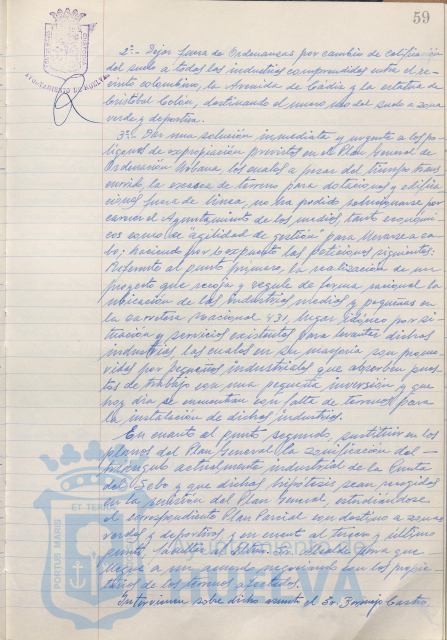 59
AYUNTAMIENTO DE HUELVA
2º.- Dejar fuera de Ordenanzas por cambio de calificación
del suelo a todas las industrias comprendidas entre el re-
cinto colombino, la Avenida de Cádiz y la estatua de
Cristóbal Colón, destinando el nuevo uso del suelo a zona
verde y deportiva.
3º.- Dar una solución inmediata y urgente a los po-
lígonos de expropiación previstos en el Plan General de
Ordenación Urbana, los cuales a pesar del tiempo trans
currido, la escasez de terreno para dotaciones y edifica
ciones fuera de línea, no ha podido solucionarse por
carecer el Ayuntamiento de los medios tanto económi-
cos como de "agilidad de gestión" para llevarse a ca-
bo; haciendo por lo expuesto las peticiones siguientes:
Referente al punto primero, la realización de un
proyecto que recoja y regule de forma racional la
ubicación de las Industrias medias y pequeñas en
la carretera Nacional 431, lugar idóneo por si-
tuación y servicios existentes para levantar dichas
industrias, las cuales en su mayoría son promo-
vidas por pequeños industriales que absorben pues-
tos de trabajo con una pequeña inversión y que
hoy día se encuentran con falta de terrenos para
la instalación de dichas industrias.
En cuanto al punto segundo, sustituir en los
planos del Plan General, la zonificación del -
polígono actualmente industrial de la Punta
del Sebo y que dichas hipótesis sean recogidas
en la revisión del Plan General, estudiándose
el correspondiente Plan Parcial con destino a zonas
verdes y deportivas y en cuanto al tercer y último
punto, facultar al Iltmo. Sr. Alcalde para que
llegue a un acuerdo negociando con los propie-
tarios de los terrenos afectados.
Intervienen sobre dicho asunto el Sr. Bermejo Castro,
PORTUS MARIS
ET TERRE
Ayuntamiento
HUELVA